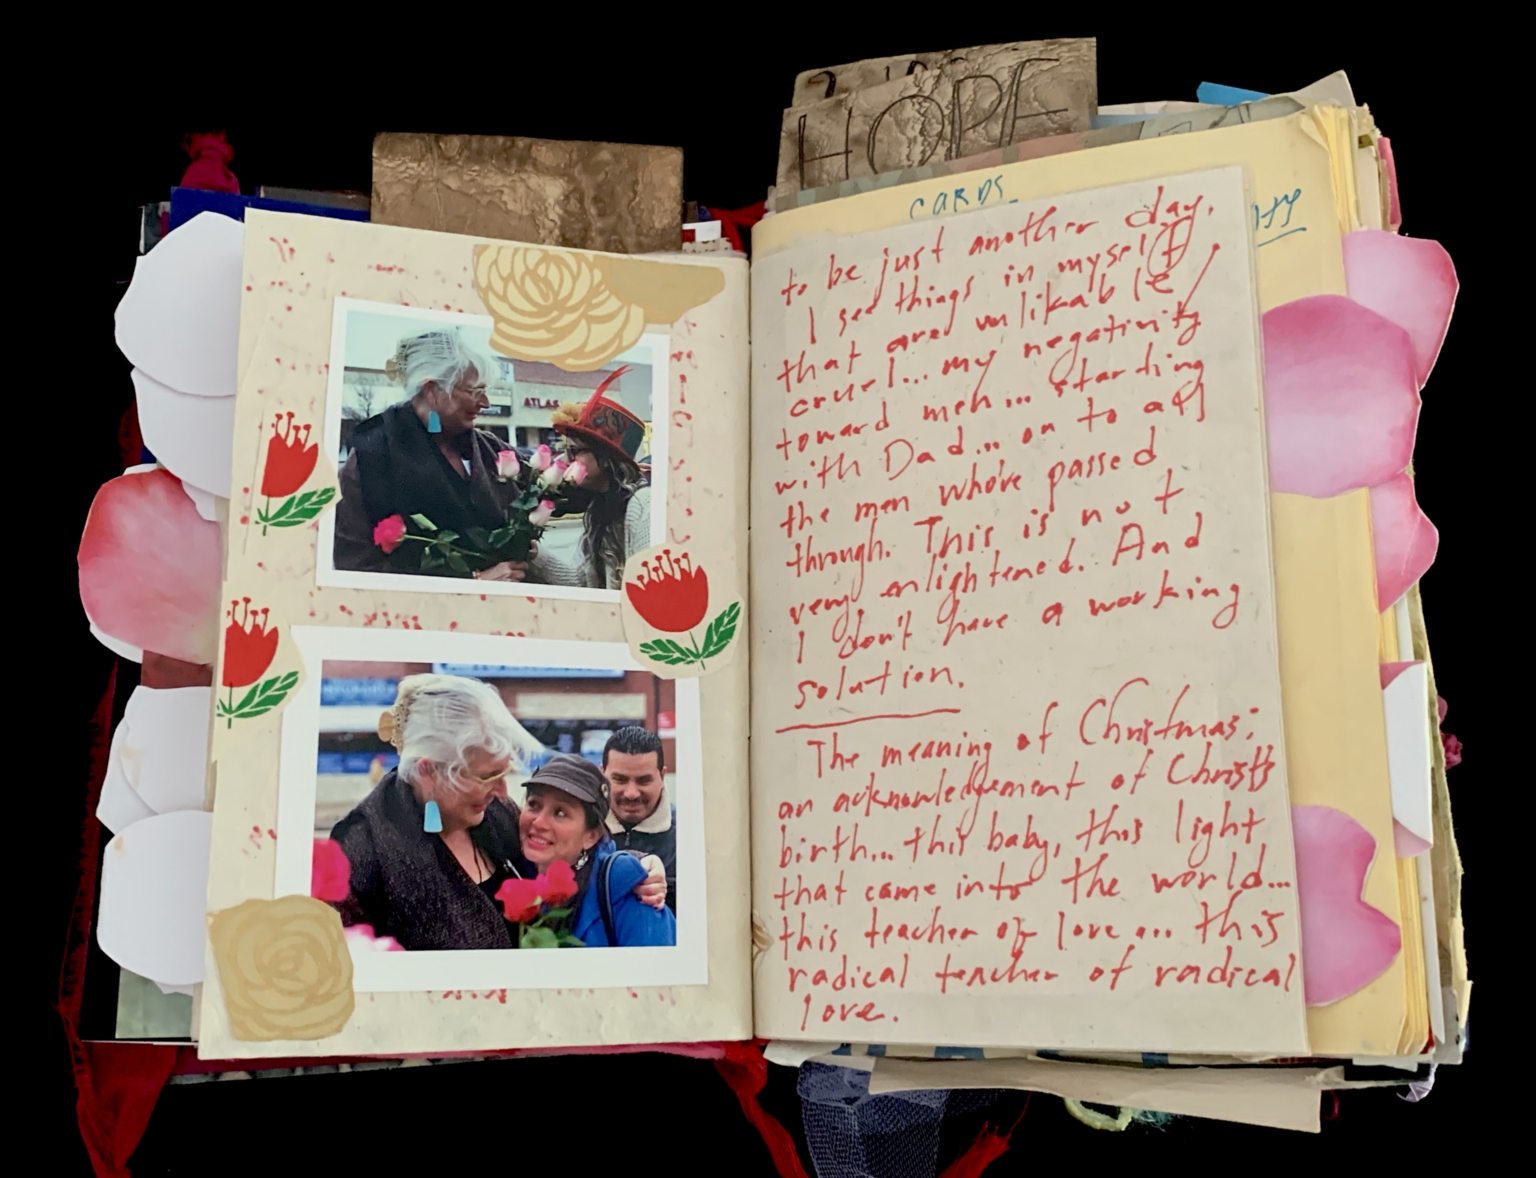 HOPE
CARDS
to be just another day.
I see things in myself
that are unlikable /
cruel... my negativity
toward men... starting
with Dad... on to all
the men who've passed
through. This is not
very enlightened. And
I don't have a working
solution.
The meaning of Christmas:
an acknowledgement of Christ's
birth... this baby, this light
that came into the world...
this teacher of love... this
radical teacher of radical
love.
ATLAS